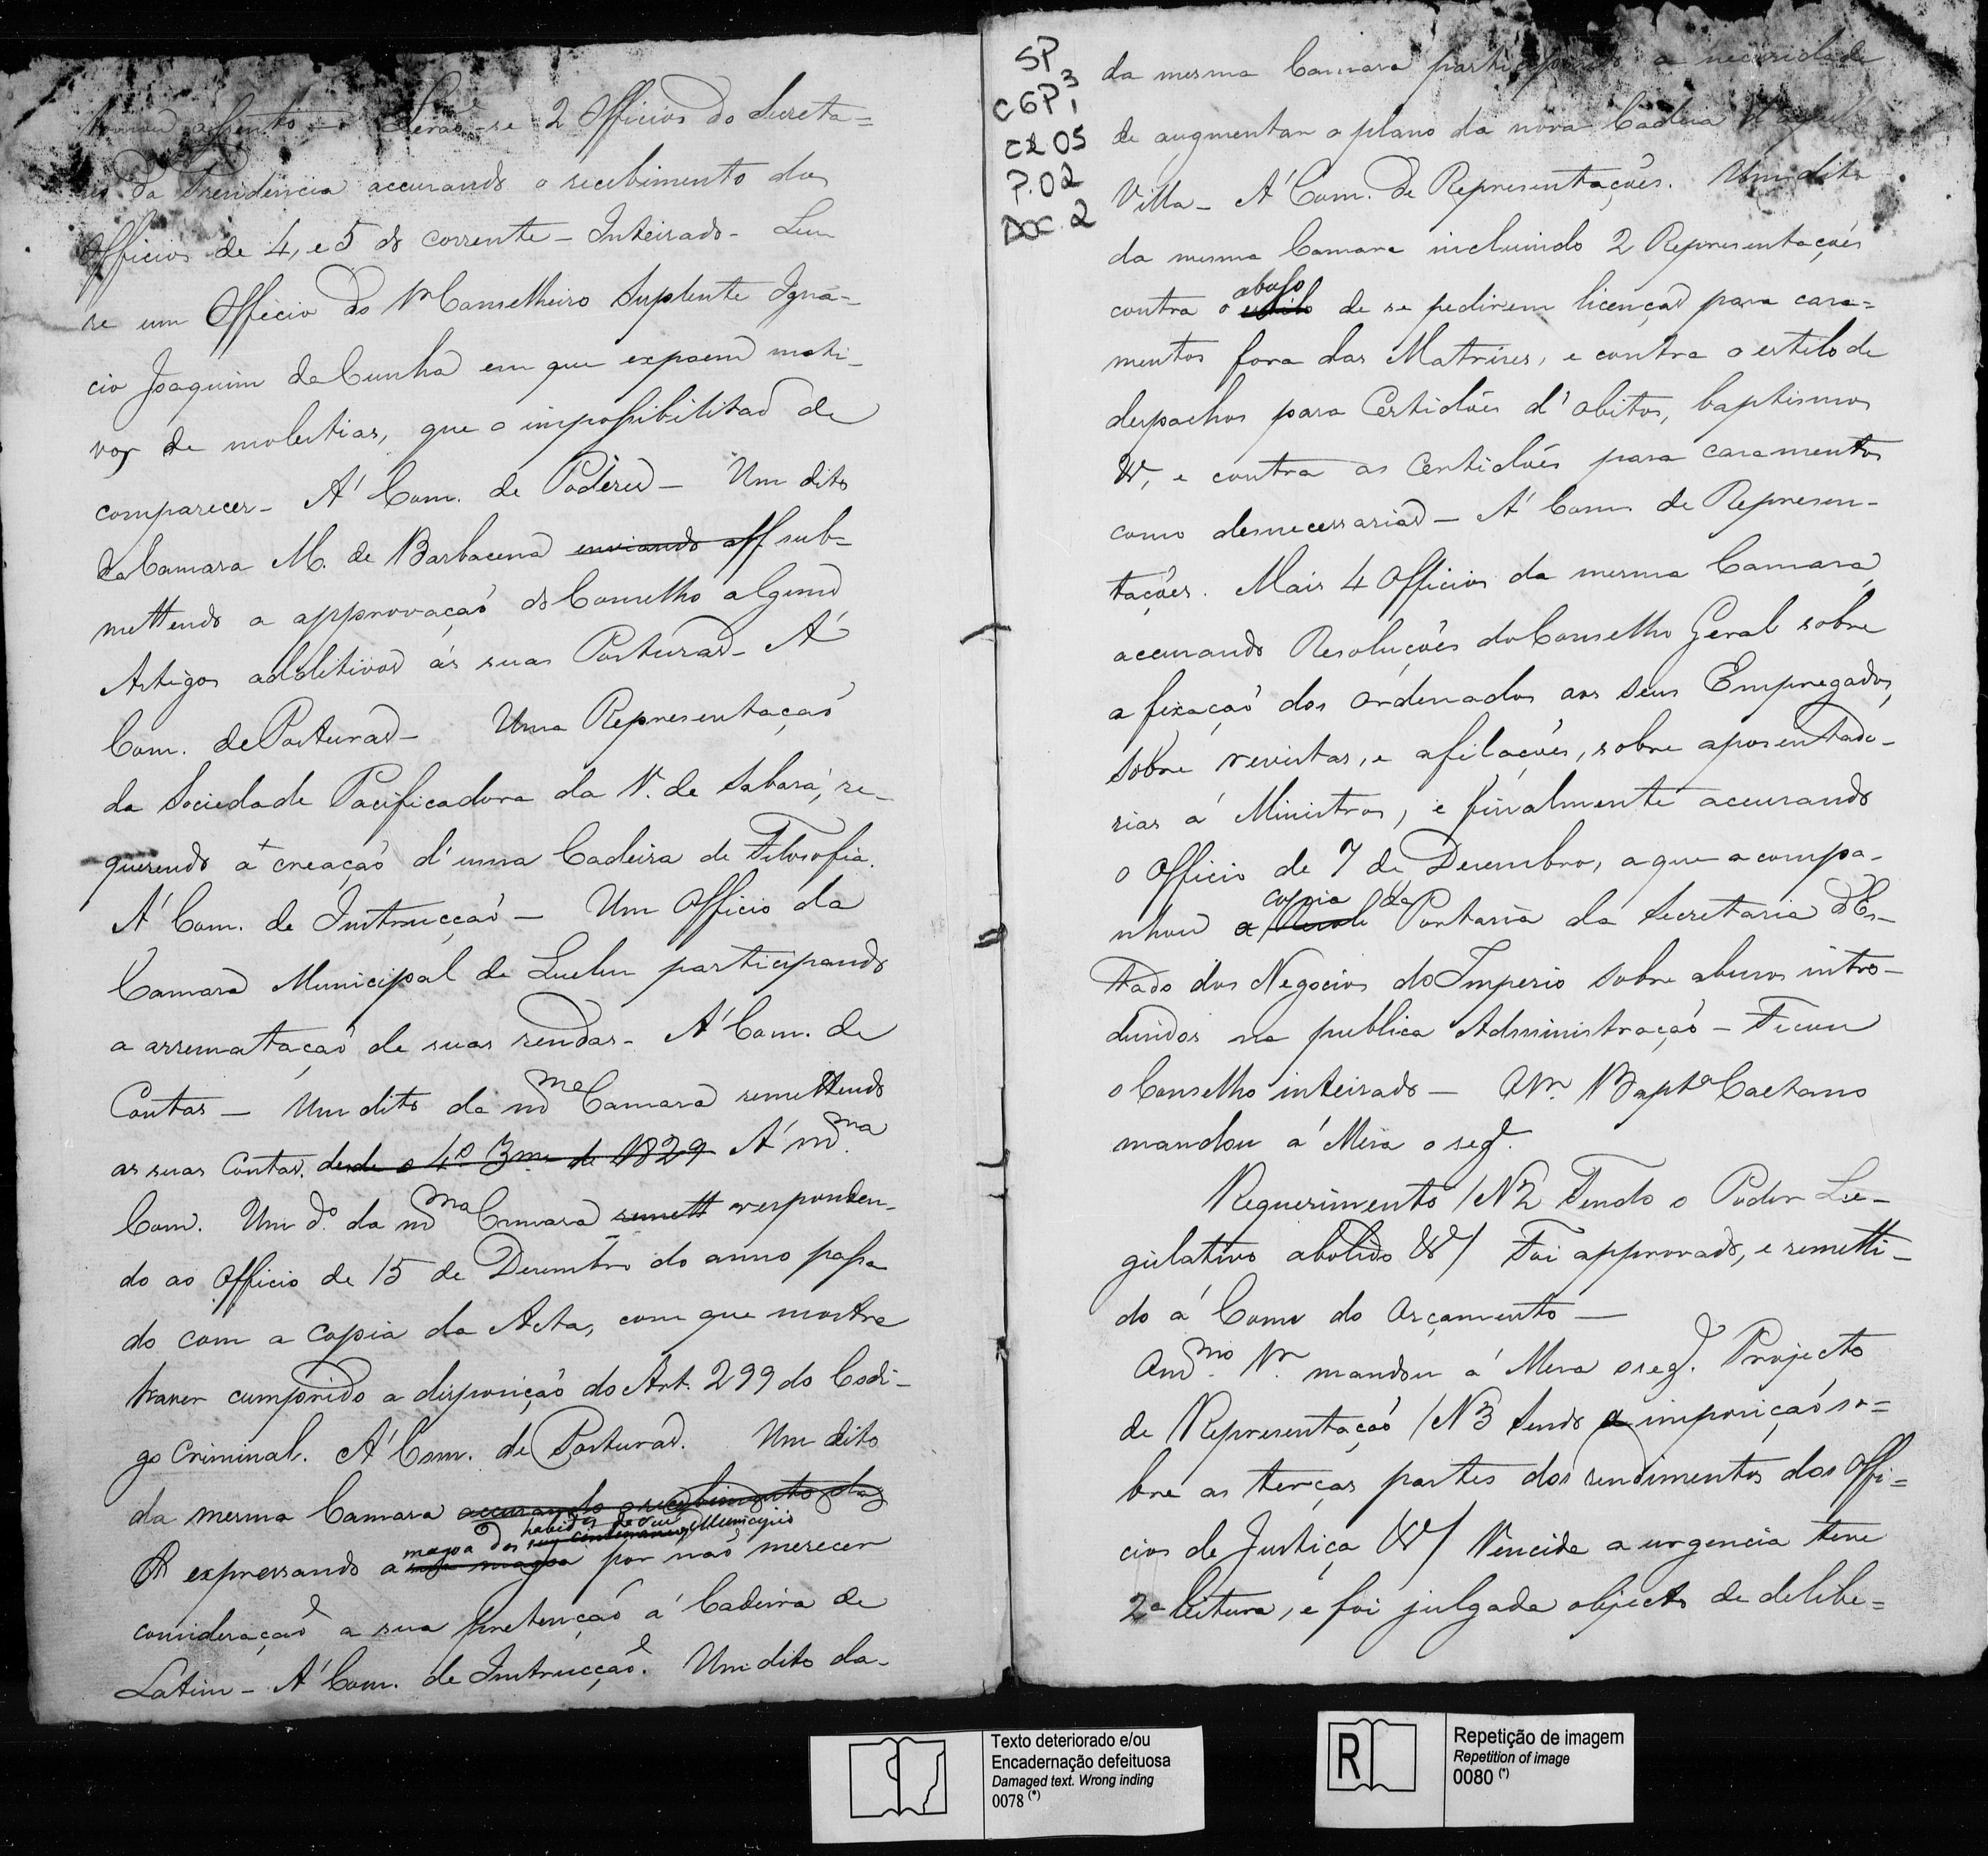 tomou assento — Lerão-se 2 Officios do Secreta=
rio da Presidencia accusando o recebimento dos
Officios de 4, e 5 do corrente — Inteirado — Leu
se um Officio do Sr Conselheiro Suplente Igna-
cio Joaquim da Cunha em que expoem moti-
vos de molestias, que o impossibilitão de
comparecer — Á Com. de Poderes — Um dito
da Camara M. de Barbacena enviando aff sub-
mettendo a approvação do Conselho alguns
Artigos additivos ás suas Posturas — Á
Com. de Posturas — Uma Representação
da Sociedade Pacificadora da V. de Sabará, re-
querendo a creação d'uma Cadeira de Filosofia.
Á Com. de Instrucção — Um Officio da
Camara Municipal de Queluz participando
a arrematação de suas rendas — Á Com. de
Contas — Um dito da mma Camara remettendo
as suas Contas. desde o 4º 3me de 1829 Á mma
Com. Um do. da mma Camara remett responden-
do ao Officio de 15 de Dezembro do anno passa
do com a copia da Acta, com que mostra
haver cumprido a disposição do Art. 299 do Codi-
go Criminal. Á Com. de Posturas. Um dito
da mesma Camara accusando o recebimento das
magoa dos habides de seu Municipio
R expressando a sua magoa por não merecer
consideração a sua pretenção á Cadeira de
Latim — Á Com. de Instrucção. Um dito da
SP
CGP3 1
CX 05
P. 02
DOC. 2
da mesma Camara participando a necessidade
de augmentar o plano da nova Cadeia d'aquella
Villa — Á Com. de Representações. Um dito
da mesma Camara incluindo 2 Representações
abuso
contra o estilo de se pedirem licenças para casa=
mentos fora das Matrizes, e contra o estilo de
despachos para Certidões d'obitos, baptismos
&, e contra as Certidões para casamentos
como desnecessarias — Á Com. de Represen-
tações. Mais 4 Officios da mesma Camara
accusando Resoluções do Conselho Geral sobre
a fixação dos ordenados aos seus Empregados,
sobre revistas, e afilações, sobre aposentado-
rias á Ministros, e finalmente accusando
o Officio de 7 de Dezembro, a que acompa-
copia da
nhou a Portaria da Secretaria d'Es-
tado dos Negocios do Imperio sobre abusos intro-
dusidos na publica Administração — Ficou
o Conselho inteirado — O Sr. Bapta Caetano
mandou á Mesa o seg.
Requerimento /N2 Tendo o Poder Le-
gislativo abolido &/ Foi approvado, e remetti-
do á Comm do Orçamento —
O mmo Sr. mandou á Mesa o seg. Projecto
de Representação /N3 Sendo a imposição so=
bre as terças partes dos rendimentos dos Offi=
cios de Justiça &/ Vencida a urgencia teve
2a leitura, e foi julgada objecto de delibe=
Texto deteriorado e/ou
Encadernação defeituosa
Damaged text. Wrong inding
0078 (*)
R
Repetição de imagem
Repetition of image
0080 (*)